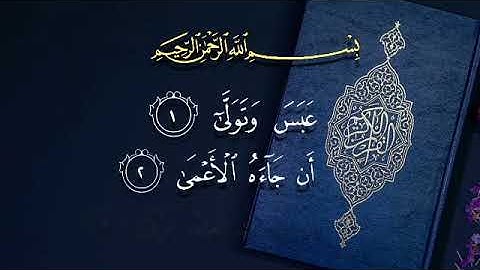 بِسْمِ ٱللَّهِ ٱلرَّحْمَٰنِ ٱلرَّحِيمِ
عَبَسَ وَتَوَلَّىٰٓ ١
أَن جَآءَهُ ٱلْأَعْمَىٰ ٢
القرآن الكريم